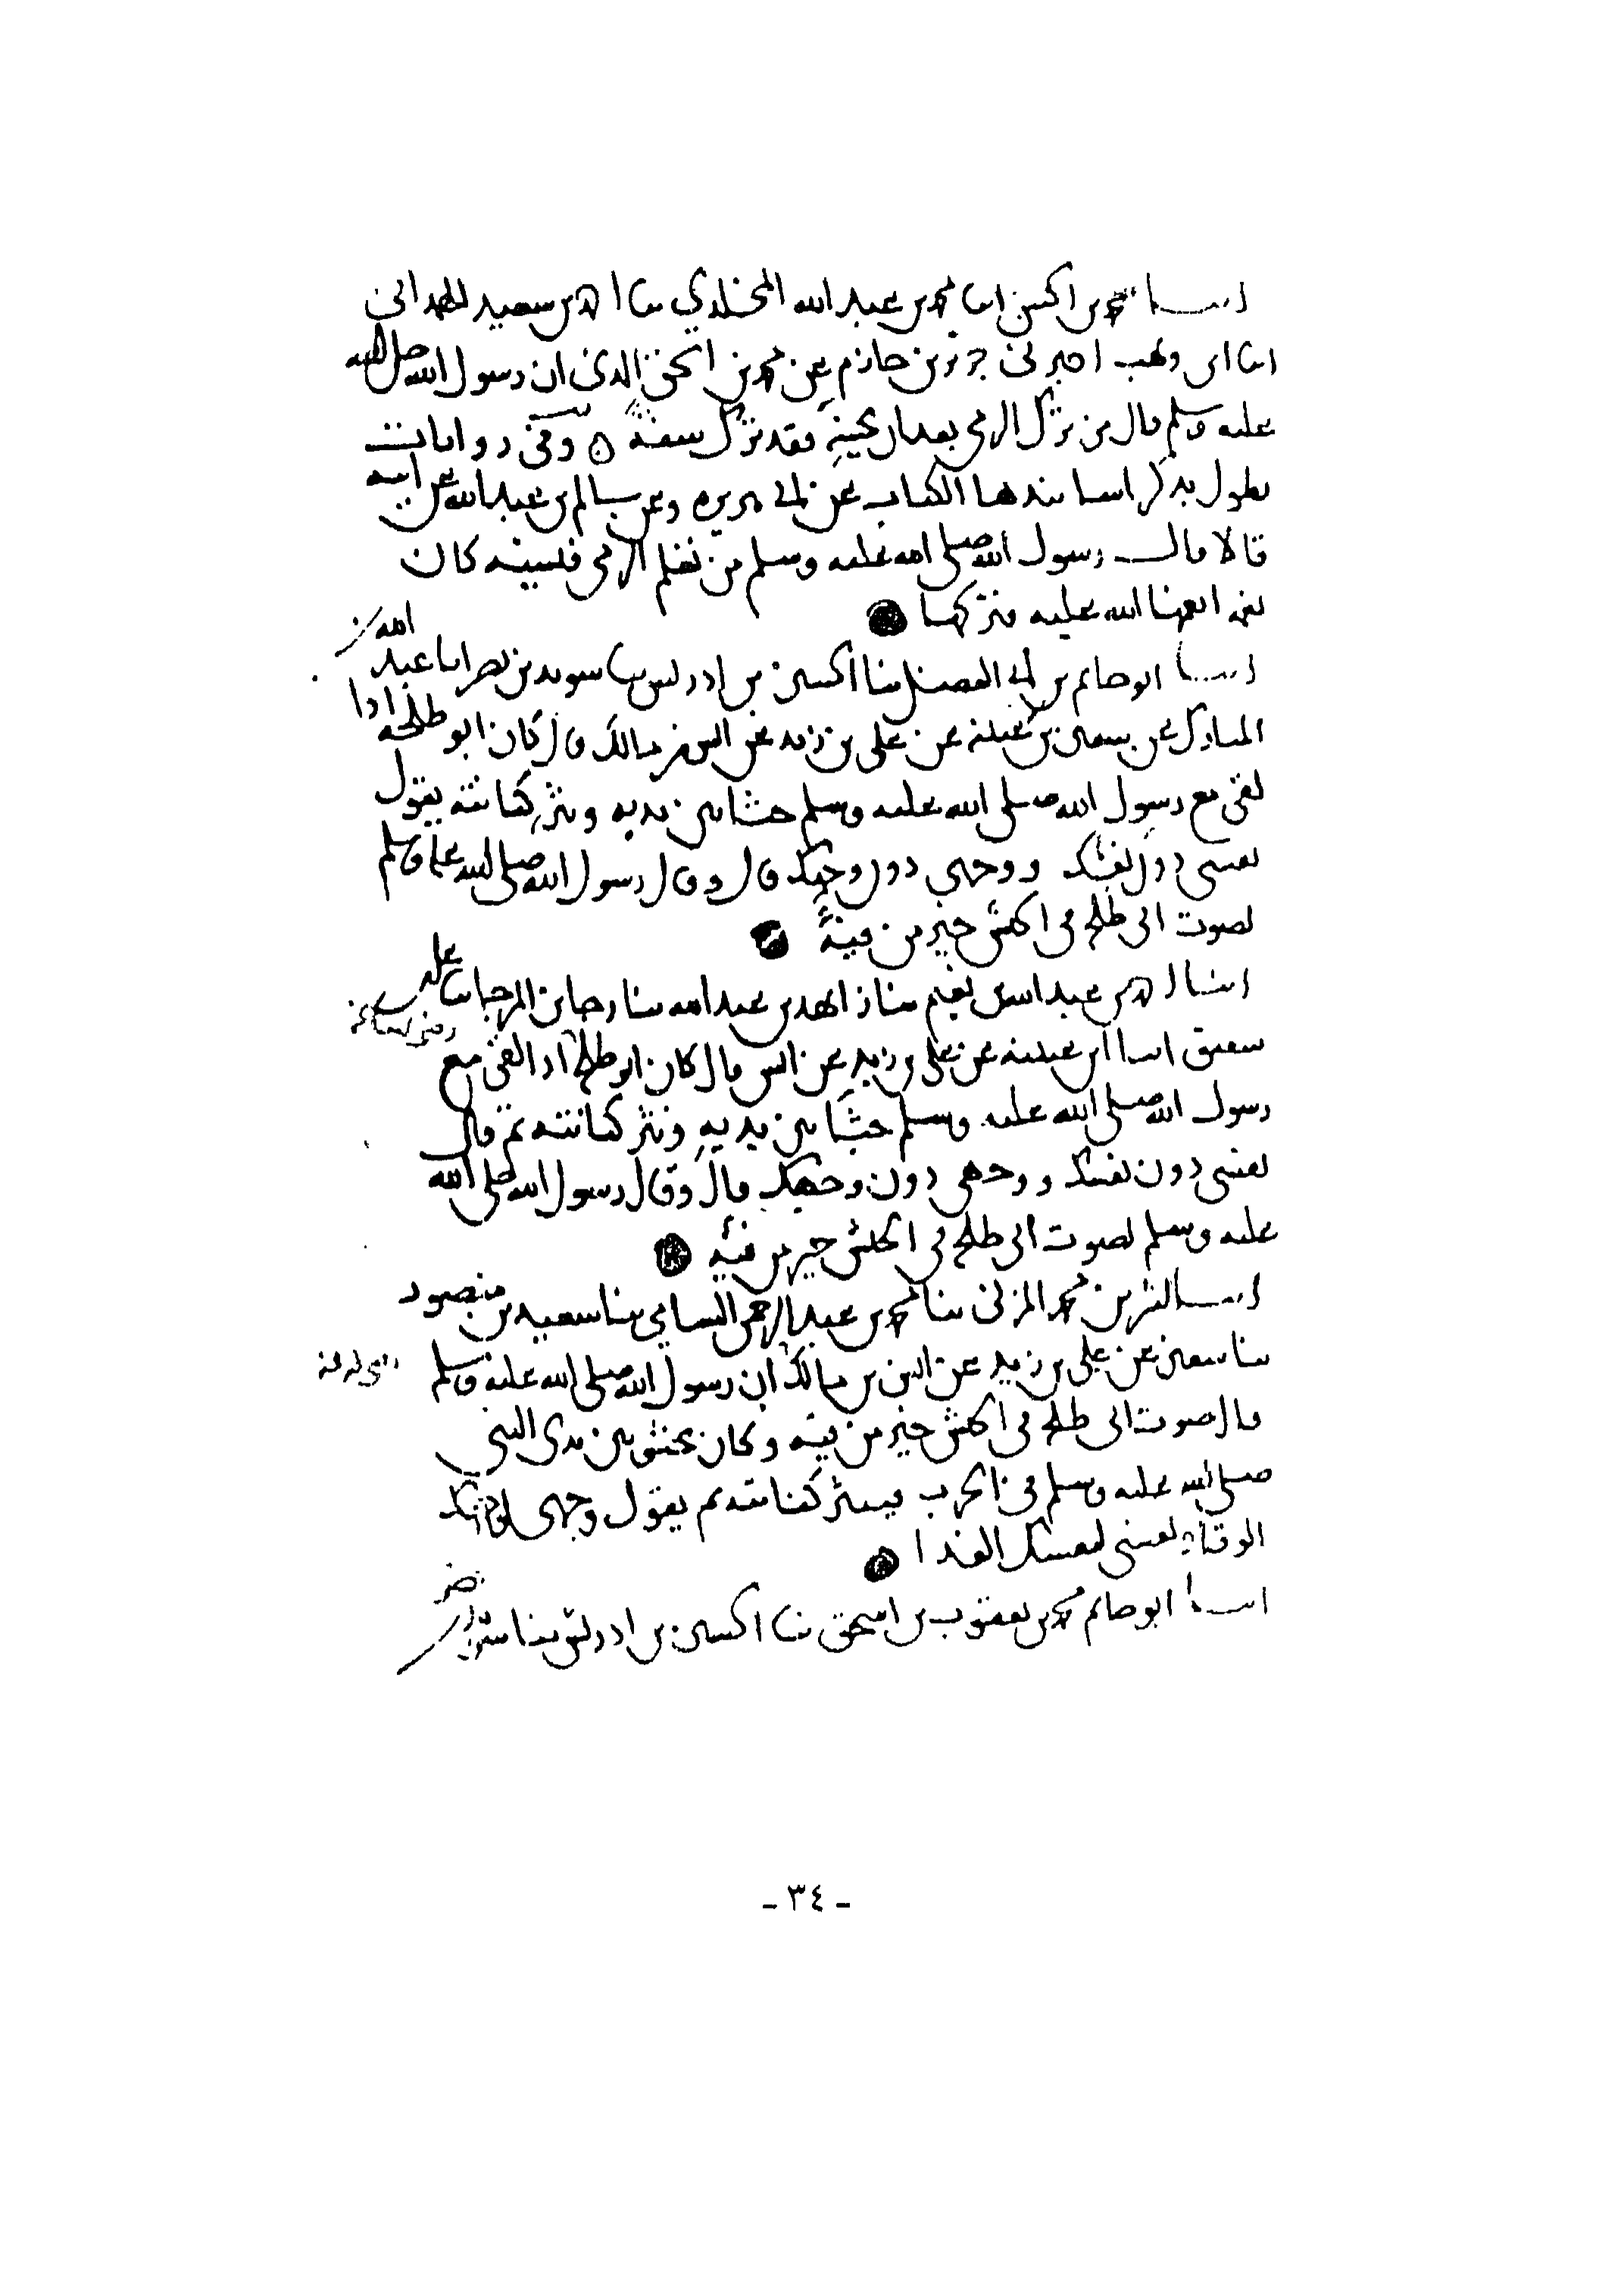 اخبرنا محمد بن الحسن انا محمد بن عبد الله المخلدي نا احمد بن سعيد الهمداني
انا ابن وهب اخبرني جرير بن حازم عن محمد بن اسحق المدني ان رسول الله صلى الله
عليه وسلم قال من ترك الرمي بعد ان يحسنه فقد ترك سنة ٥ وفي روايات
بطول بذكر اسانيدها الكتاب عن ابي هريره وعن سالم بن عبد الله عن ابيه
قالا قال رسول الله صلى الله عليه وسلم من تعلم الرمي فنسيه كان
نعمة انعمها الله عليه فتركها
اخبرنا ابو حاتم بن ابي الفضل نا الحسين بن ادريس نا سويد بن نصر انا عبد الله بن
المبارك عن سفين بن عيينه عن علي بن زيد عن انس بن مالك قال كان ابو طلحه اذا
لقي مع رسول الله صلى الله عليه وسلم جثا بين يديه ونثر كنانته يقول
نفسي دون نفسك ووجهي دون وجهك قال وقال رسول الله صلى الله عليه وسلم
لصوت ابي طلحة في الجيش خير من فئة
اخبرنا احمد بن عبد الله بن نعيم نا زاهد بن عبد الله نا رجا بن المرجا نا علي بن
شقيق انا ابن عيينه عن علي بن زيد عن انس قال كان ابو طلحة اذا لقي مع
رسول الله صلى الله عليه وسلم جثا بين يديه ونثر كنانته ثم قال
نفسي دون نفسك ووجهي دون وجهك قال وقال رسول الله صلى الله
عليه وسلم لصوت ابي طلحة في الجيش خير من فئة
اخبرنا بشر بن محمد المزني نا محمد بن عبد الرحمن السامي نا سعيد بن منصور
نا سفين عن علي بن زيد عن انس بن مالك ان رسول الله صلى الله عليه وسلم
قال صوت ابي طلحة في الجيش خير من فئة وكان يجثو بين يدي النبي
صلى الله عليه وسلم في الحرب فينثر كنانته ثم يقول وجهي لوجهك
الوقاء نفسي لنفسك الفدا
اخبرنا ابو حاتم محمد بن يعقوب بن اسحق نا الحسين بن ادريس نا سويد بن نصر
- ٣٤ -